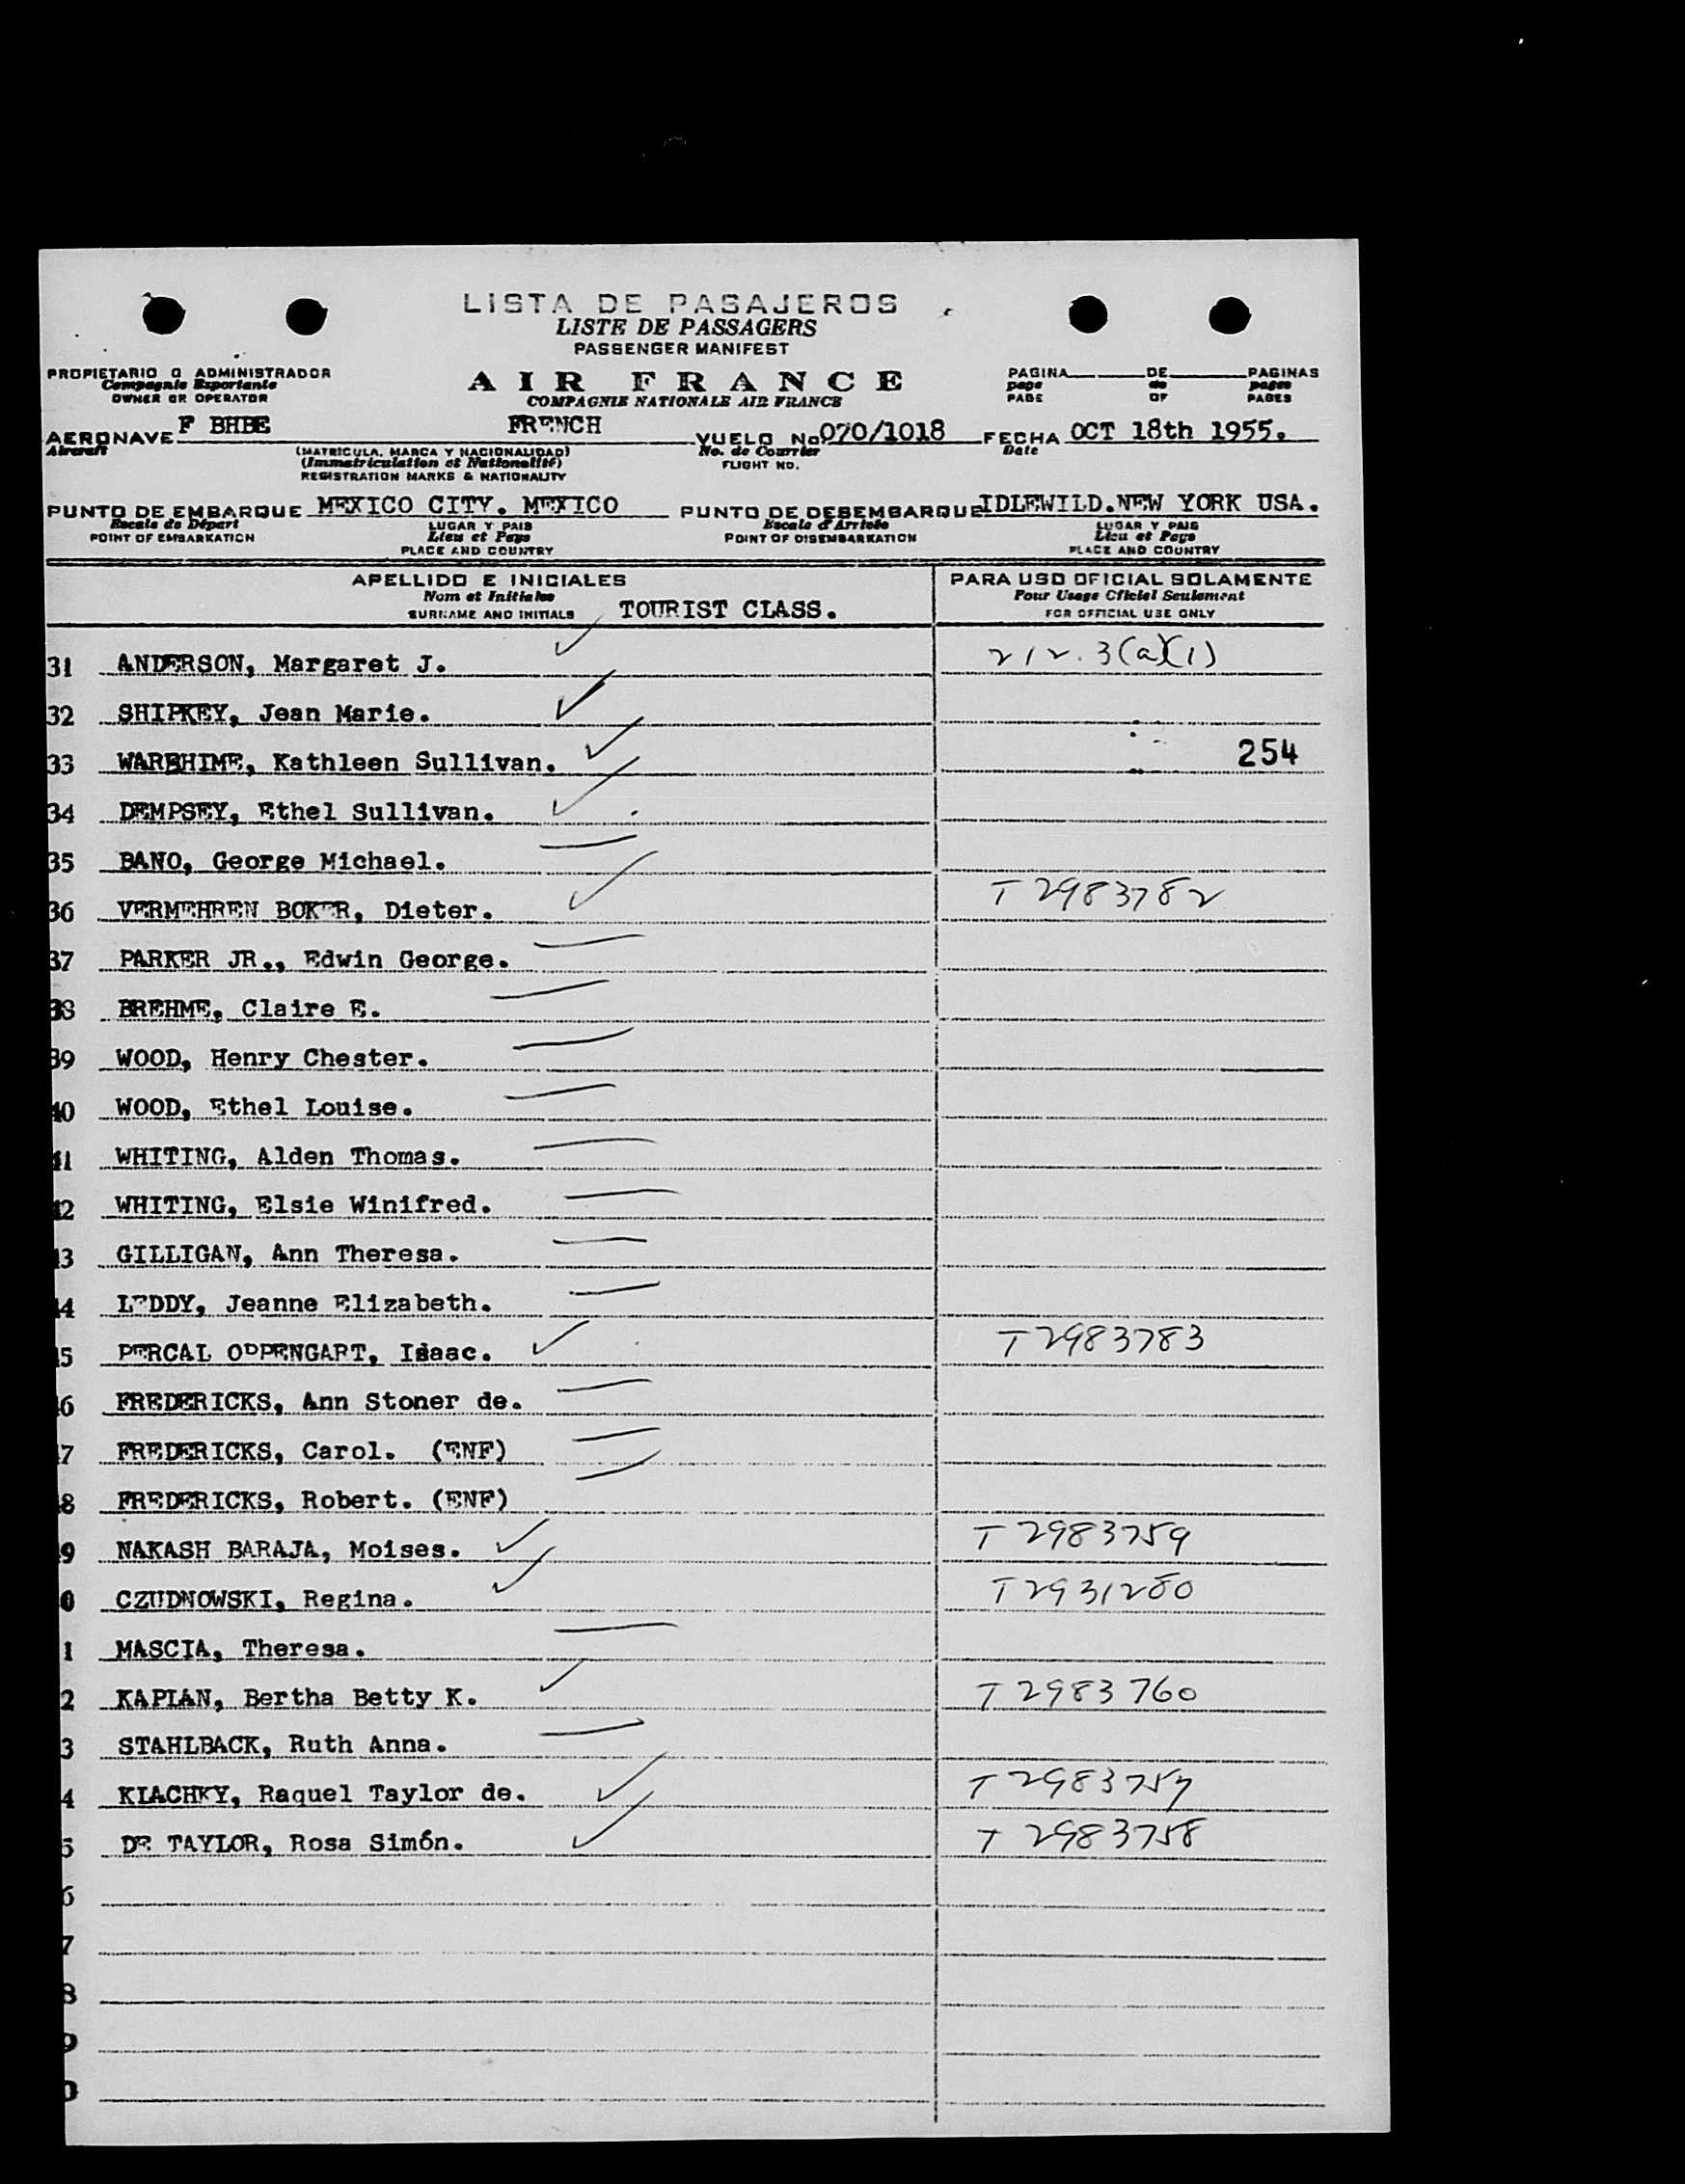 LISTA DE PASAJEROS
LISTE DE PASSAGERS
PASSENGER MANIFEST
PROPIETARIO O ADMINISTRADOR
Compagnie Exportante
OWNER OR OPERATOR
AIR FRANCE
COMPAGNIE NATIONALE AIR FRANCE
PAGINA DE PAGINAS
page de pages
PAGE OF PAGES
AERONAVE F BHBE FRENCH VUELO No 070/1018 FECHA OCT 18th 1955.
Aircraft (MATRICULA, MARCA Y NACIONALIDAD) No. de Courrier Date
(Immatriculation et Nationalité) FLIGHT NO.
REGISTRATION MARKS & NATIONALITY
PUNTO DE EMBARQUE MEXICO CITY. MEXICO PUNTO DE DESEMBARQUE IDLEWILD.NEW YORK USA.
Escale de Départ LUGAR Y PAIS Escale d'Arrivée LUGAR Y PAIS
POINT OF EMBARKATION Lieu et Pays POINT OF DISEMBARKATION Lieu et Pays
PLACE AND COUNTRY PLACE AND COUNTRY
APELLIDO E INICIALES PARA USO OFICIAL SOLAMENTE
Nom et Initiales Pour Usage Officiel Seulement
SURNAME AND INITIALS TOURIST CLASS. FOR OFFICIAL USE ONLY
31 ANDERSON, Margaret J. 212.3(a)(1)
32 SHIPKEY, Jean Marie.
33 WARSHIME, Kathleen Sullivan. 254
34 DEMPSEY, Ethel Sullivan.
35 BANO, George Michael.
36 VERMEHREN BOKER, Dieter. T 2983782
37 PARKER JR., Edwin George.
38 BREHME, Claire E.
39 WOOD, Henry Chester.
40 WOOD, Ethel Louise.
41 WHITING, Alden Thomas.
42 WHITING, Elsie Winifred.
43 GILLIGAN, Ann Theresa.
44 LEDDY, Jeanne Elizabeth.
5 PERCAL OPPENGART, Isaac. T 2983783
6 FREDERICKS, Ann Stoner de.
7 FREDERICKS, Carol. (ENF)
8 FREDERICKS, Robert. (ENF)
9 NAKASH BARAJA, Moises. T 2983759
0 CZUDNOWSKI, Regina. T 2931280
1 MASCIA, Theresa.
2 KAPLAN, Bertha Betty K. T 2983760
3 STAHLBACK, Ruth Anna.
4 KLACHKY, Raquel Taylor de. T 2983757
5 DE TAYLOR, Rosa Simón. T 2983758
6
7
8
9
0